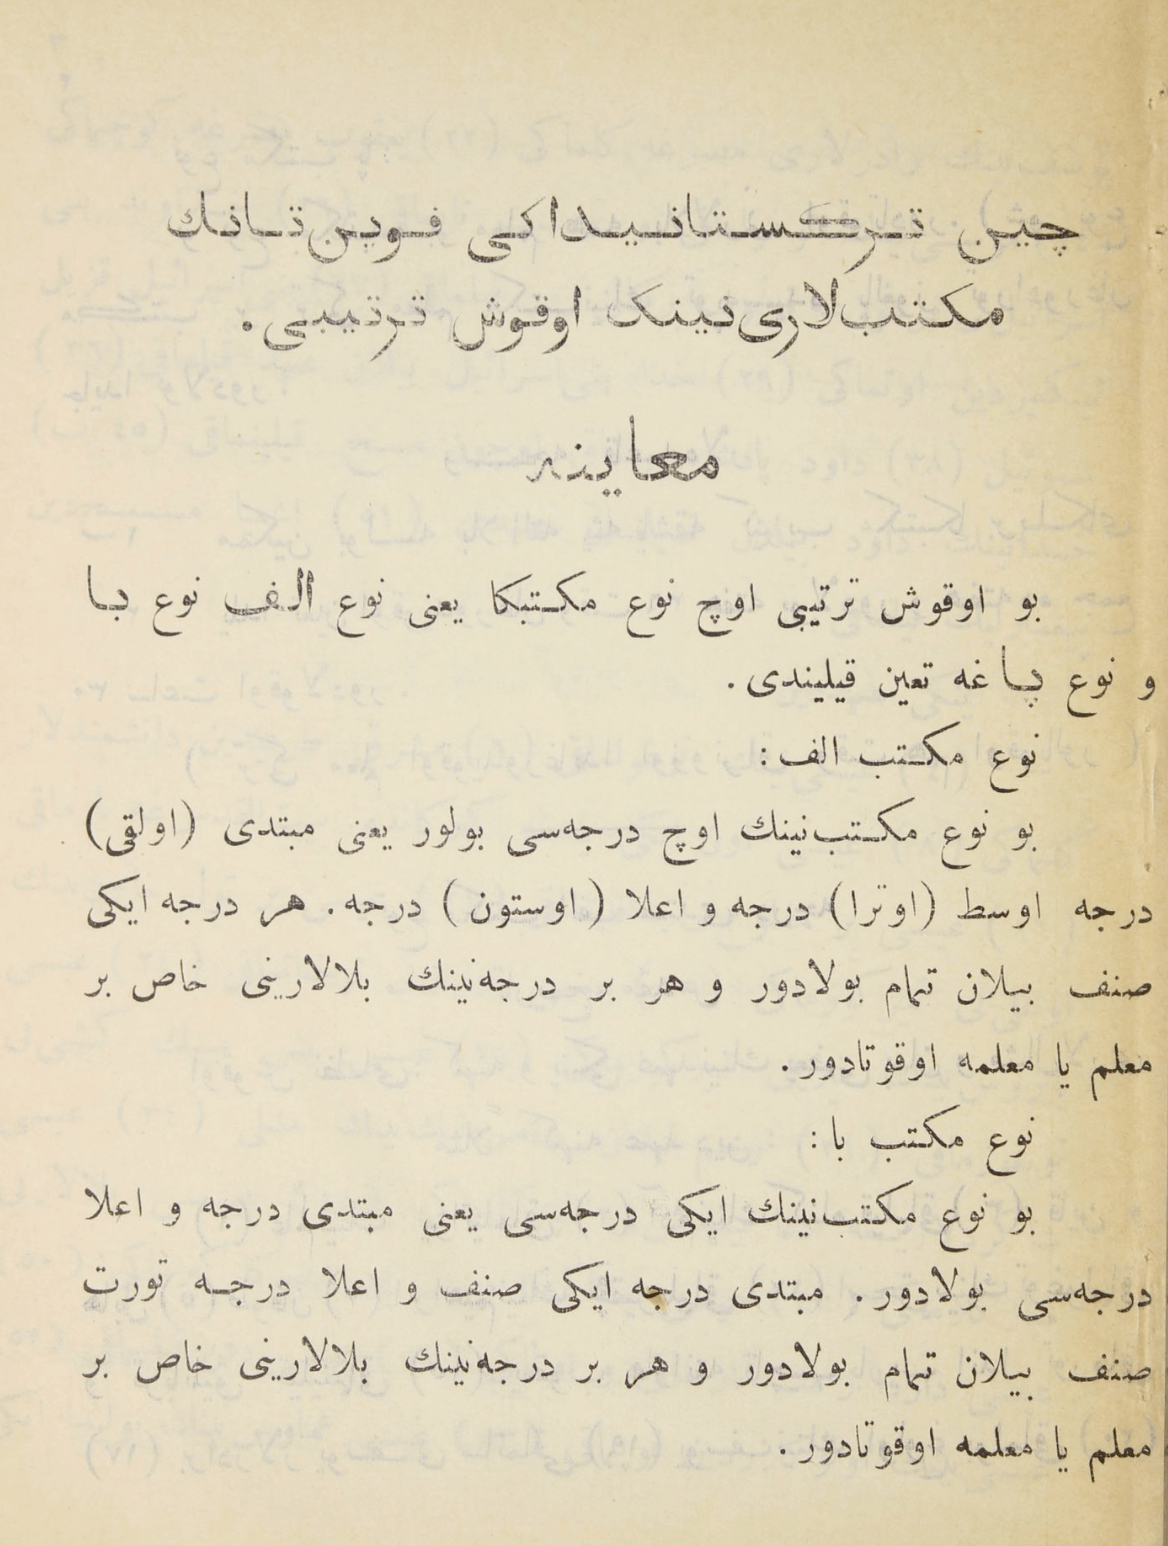 چین ترکستانیداکی فوبن‌تانك
مکتب‌لاری‌نینك اوقوش ترتیبی.
معاینه
بو اوقوش ترتیبی اوچ نوع مکتبکا یعنی نوع الف نوع با
و نوع پاغه تعین قیلیندی.
نوع مکتب الف:
بو نوع مکتب‌نینك اوچ درجه‌سی بولور یعنی مبتدی (اولقی)
درجه اوسط (اوترا) درجه و اعلا (اوستون) درجه. هر درجه ایکی
صنف بیلان تمام بولادور و هر بر درجه‌نینك بلالارینی خاص بر
معلم یا معلمه اوقوتادور.
نوع مکتب با:
بو نوع مکتب‌نینك ایکی درجه‌سی یعنی مبتدی درجه و اعلا
درجه‌سی بولادور. مبتدی درجه ایکی صنف و اعلا درجه تورت
صنف بیلان تمام بولادور و هر بر درجه‌نینك بلالارینی خاص بر
معلم یا معلمه اوقوتادور.